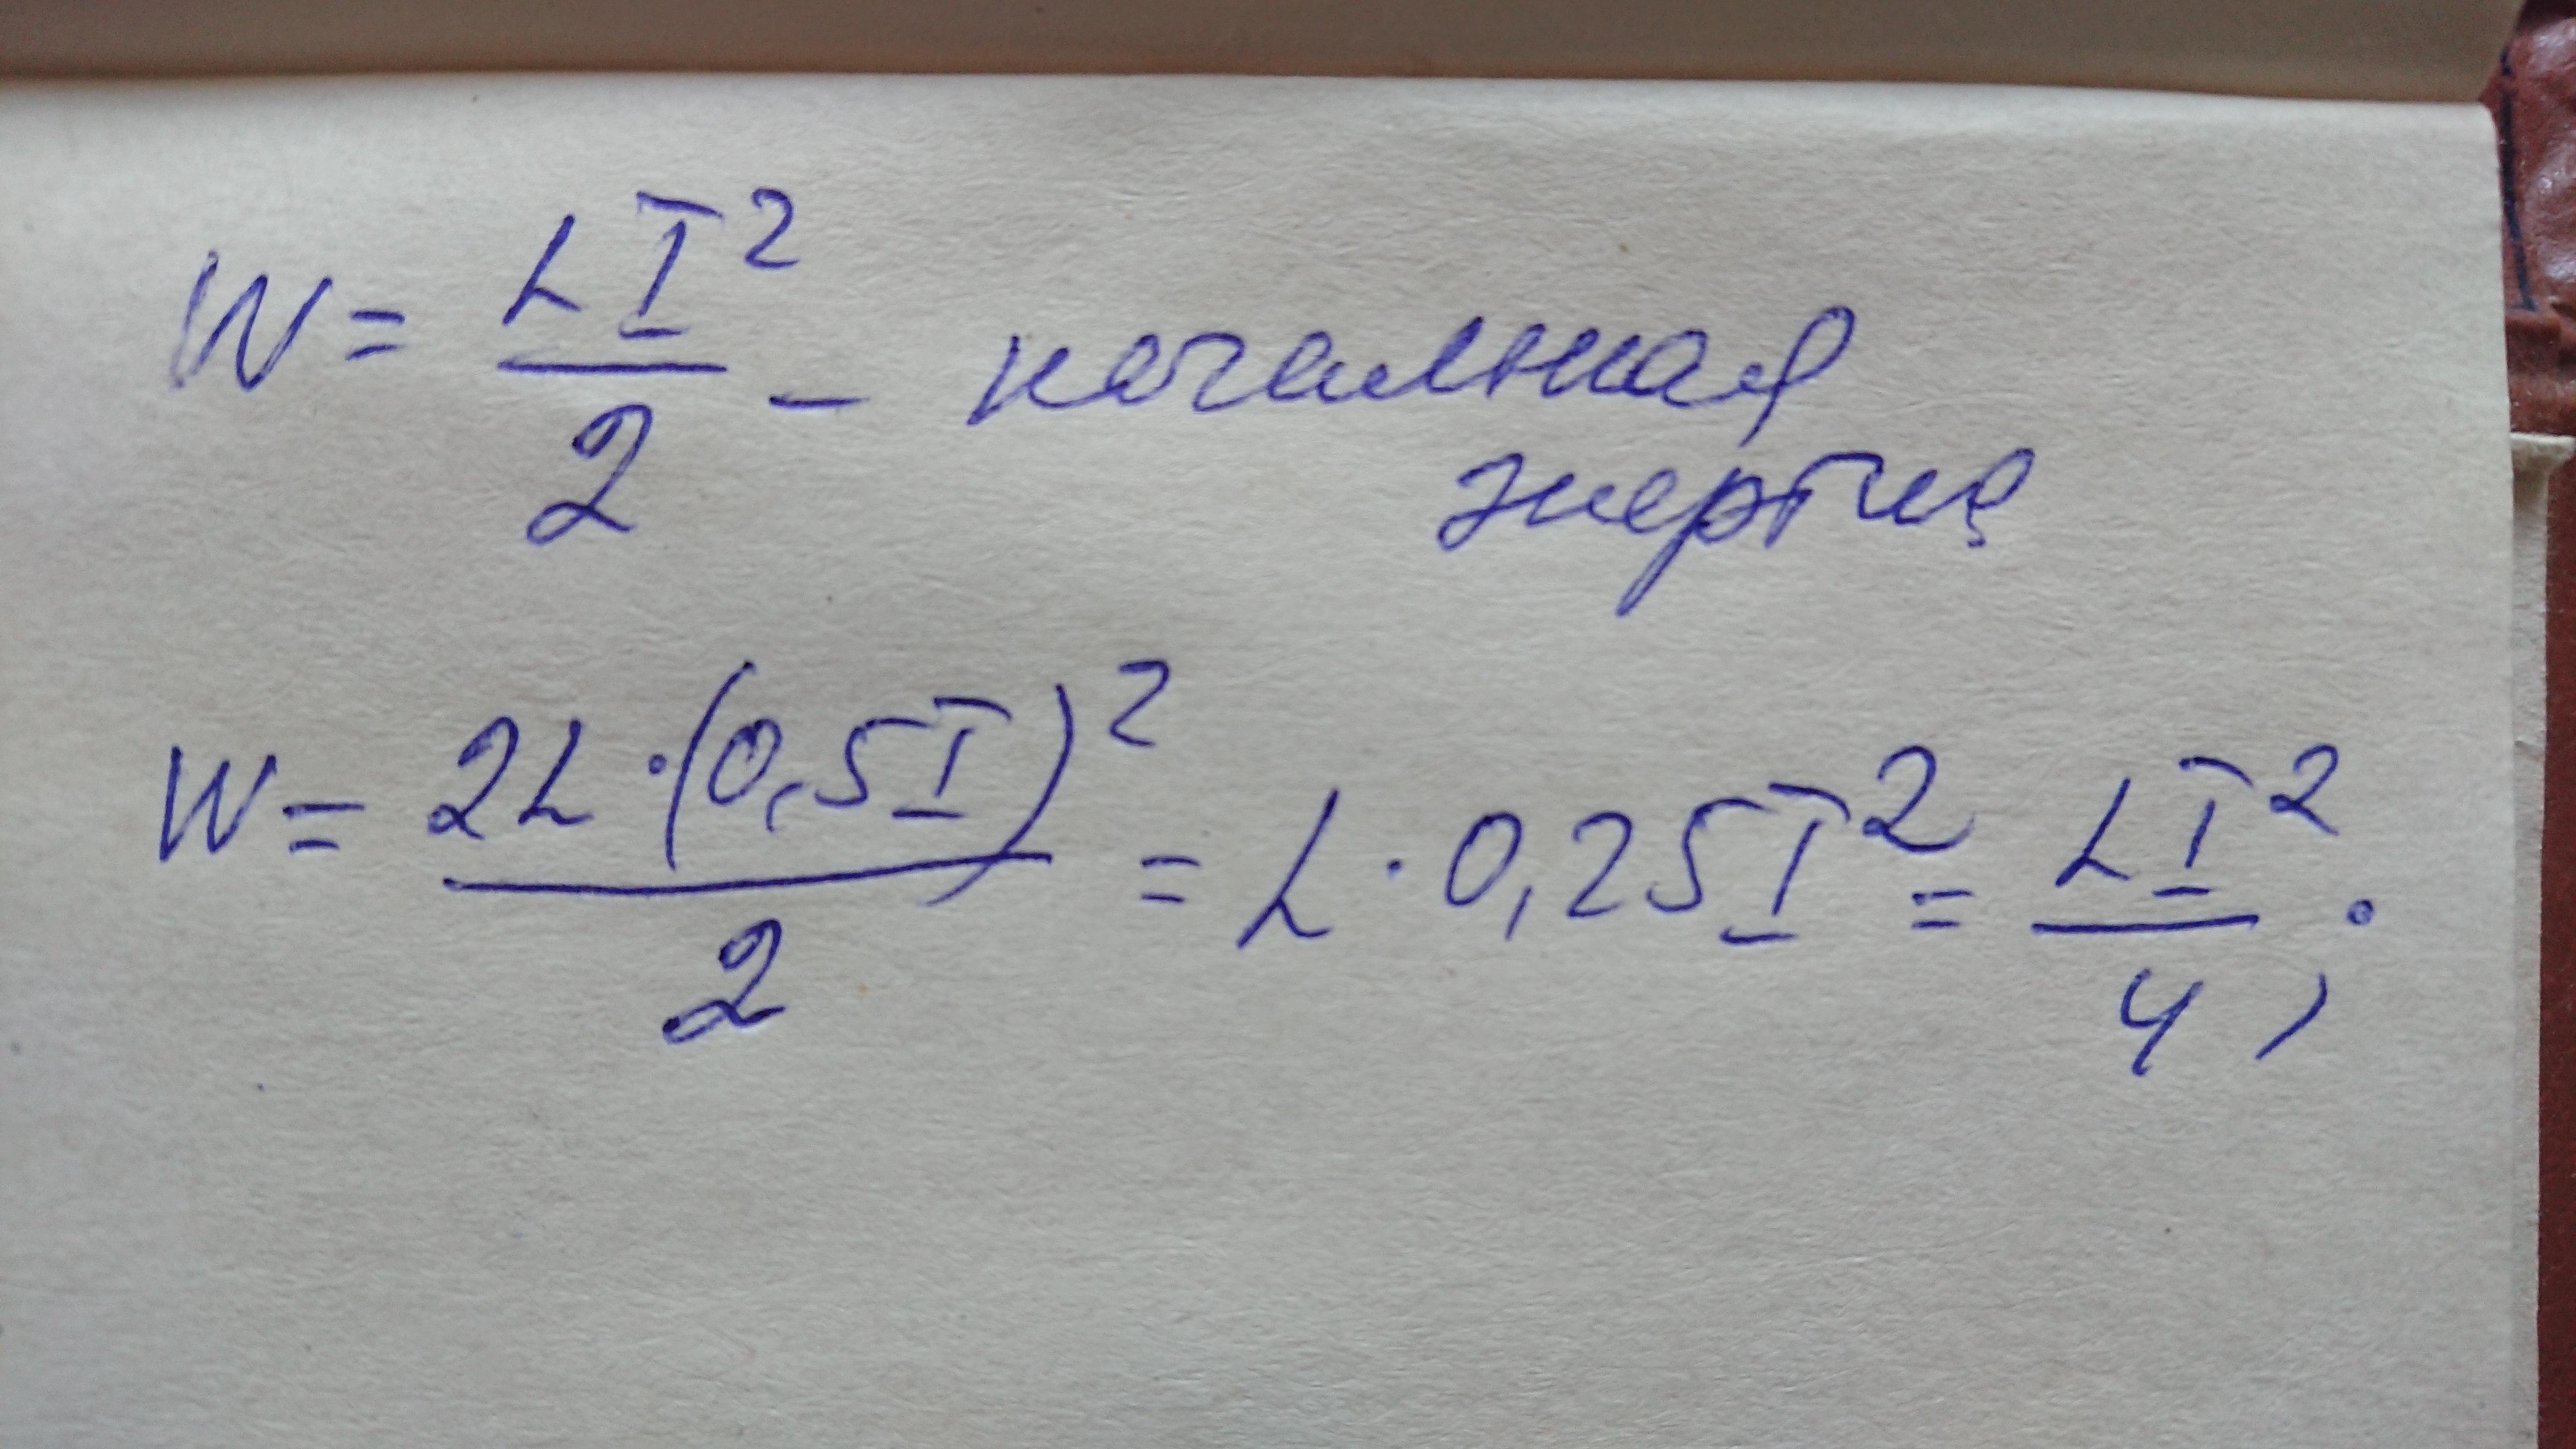 W = LI²/2 – начальная
энергия
W = 2L·(0,5I)²/2 = L·0,25I² = LI²/4 ;